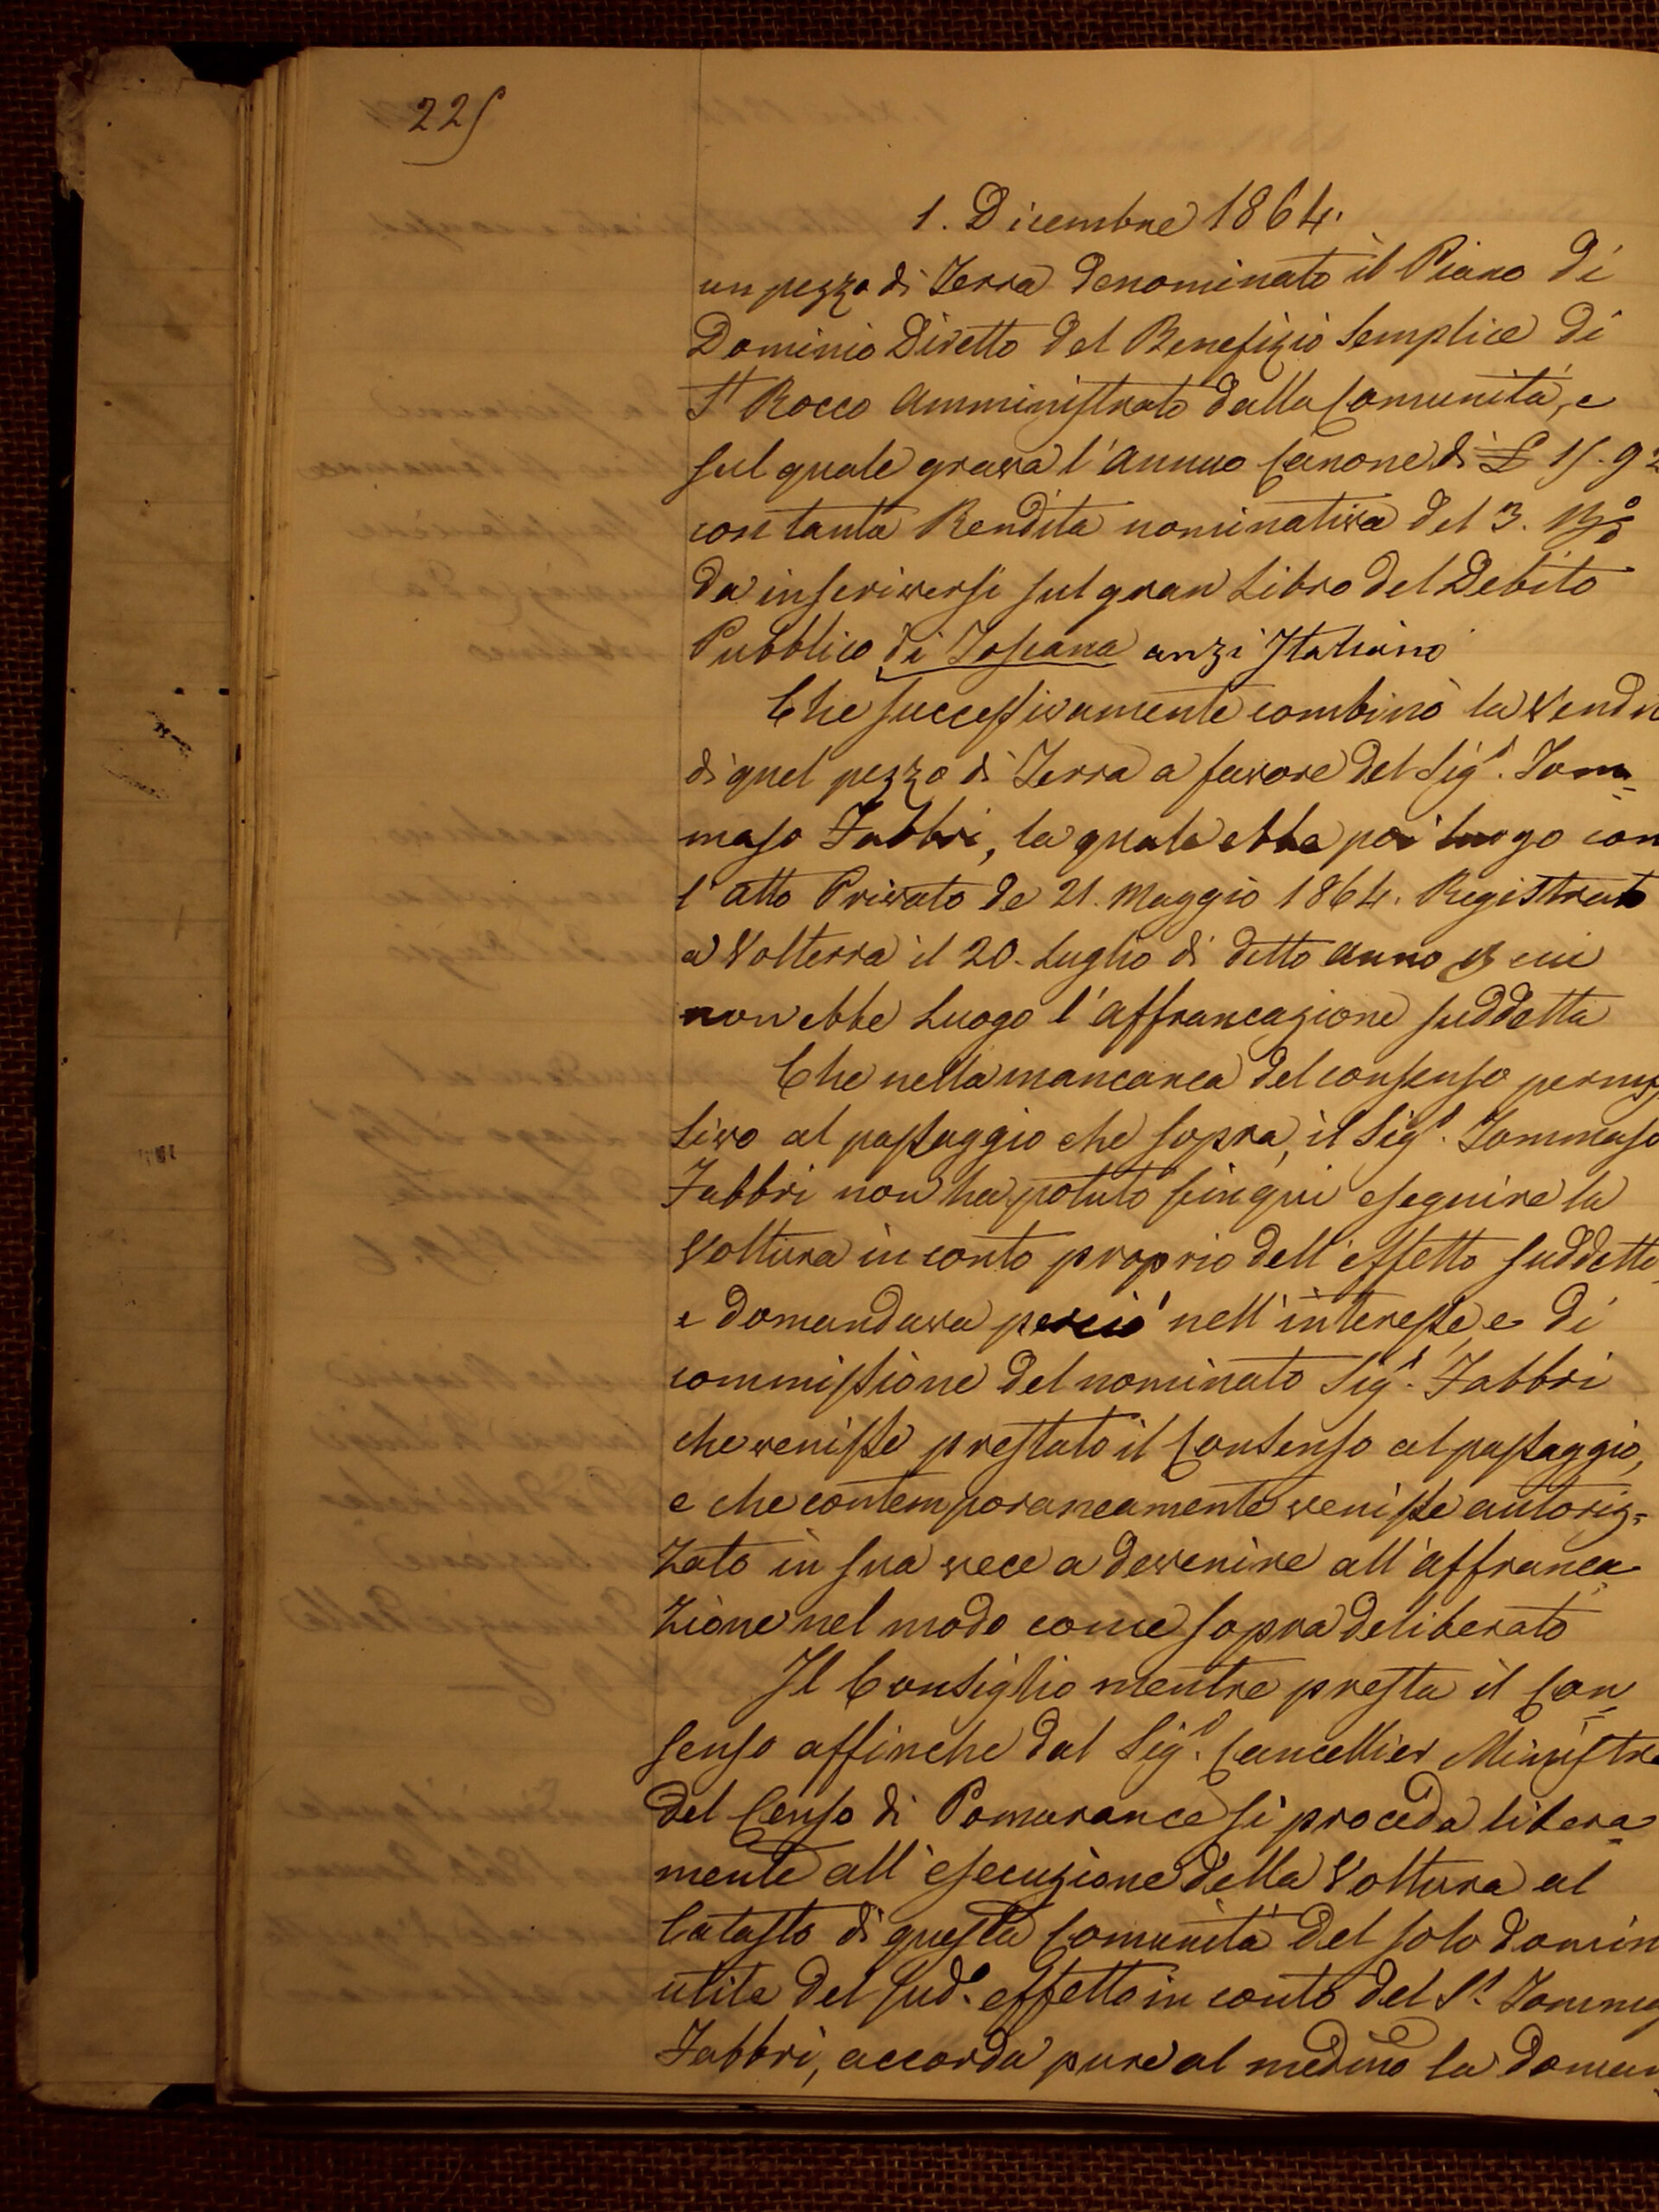 225
1. Dicembre 1864.
un pezzo di Terra denominato il Piano di
Dominio Diretto del Benefizio Semplice di
S.t Rocco Amministrato dalla Comunità, e
sul quale grava l'annuo Canone di £ 15.92
con tanta Rendita nominativa del 3. p%
da inscriversi sul gran Libro del Debito
Pubblico di Toscana anzi Italiano
Che successivamente combinò la Vendi
di quel pezzo di Terra a favore del Sig.r Tom=
maso Fabbri, la quale ebbe poi luogo con
l'atto Privato de 21. Maggio 1864. Registrato
a Volterra il 20. Luglio di detto anno p cui
non ebbe luogo l'affrancazione suddetta
Che nella mancanza del consenso permis
sivo al passaggio che sopra, il Sig.r Tommaso
Fabbri non ha potuto fin qui eseguire la
Voltura in conto proprio dell'effetto suddetto
e domandava perciò nell'interesse, e di
commissione del nominato Sig.r Fabbri
che venisse prestato il Consenso al passaggio,
e che contemporaneamente venisse autoriz=
zato in sua vece a devenire all'affranca
zione nel modo come sopra deliberato
Il Consiglio mentre presta il Con=
senso affinche dal Sig.r Cancellier Ministro
del Censo di Pomarance si proceda libera=
mente all'esecuzione della Voltura al
Catasto di questa Comunità del solo domin
utile del sud.o effetto in conto del S.r Tomma
Fabbri, accorda pure al med.mo la doman